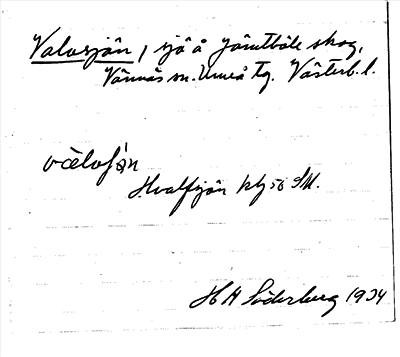 Valosjön, sjö å Jämtböle skog,
Vännäs sn. Umeå tg. Västerb. l.
vālosjɔ̈n
Hvalfsjön kbl 50 SM.
H A Söderberg 1934